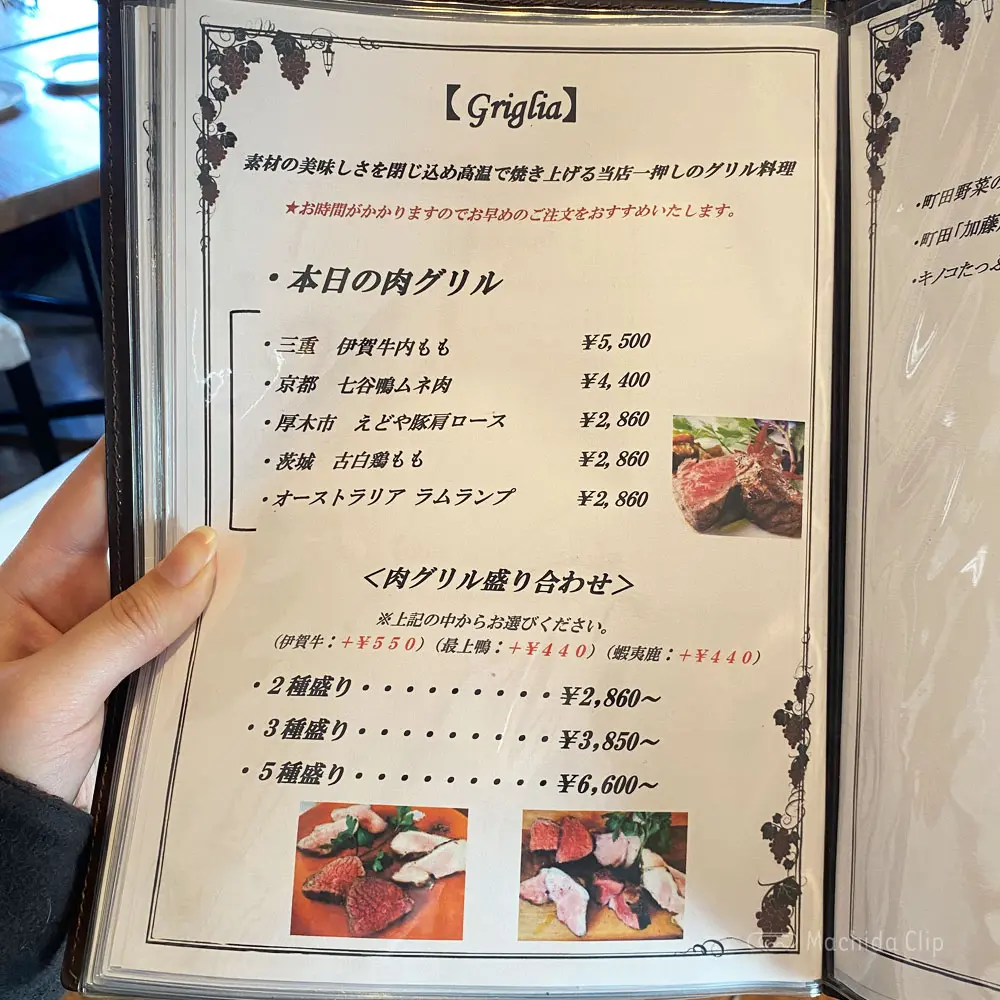 【Griglia】
素材の美味しさを閉じ込め高温で焼き上げる当店一押しのグリル料理
★お時間がかかりますのでお早めのご注文をおすすめいたします。
・本日の肉グリル
・三重　伊賀牛内もも ¥5,500
・京都　七谷鴨ムネ肉 ¥4,400
・厚木市　えどや豚肩ロース ¥2,860
・茨城　古白鶏もも ¥2,860
・オーストラリア ラムランプ ¥2,860
＜肉グリル盛り合わせ＞
※上記の中からお選びください。
（伊賀牛：＋¥５５０）（最上鴨：＋¥４４０）（蝦夷鹿：＋¥４４０）
・２種盛り・・・・・・・・・¥2,860～
・３種盛り・・・・・・・・・¥3,850～
・５種盛り・・・・・・・・・¥6,600～
・町田野菜の
・町田「加藤
・キノコたっぷ
Machida Clip